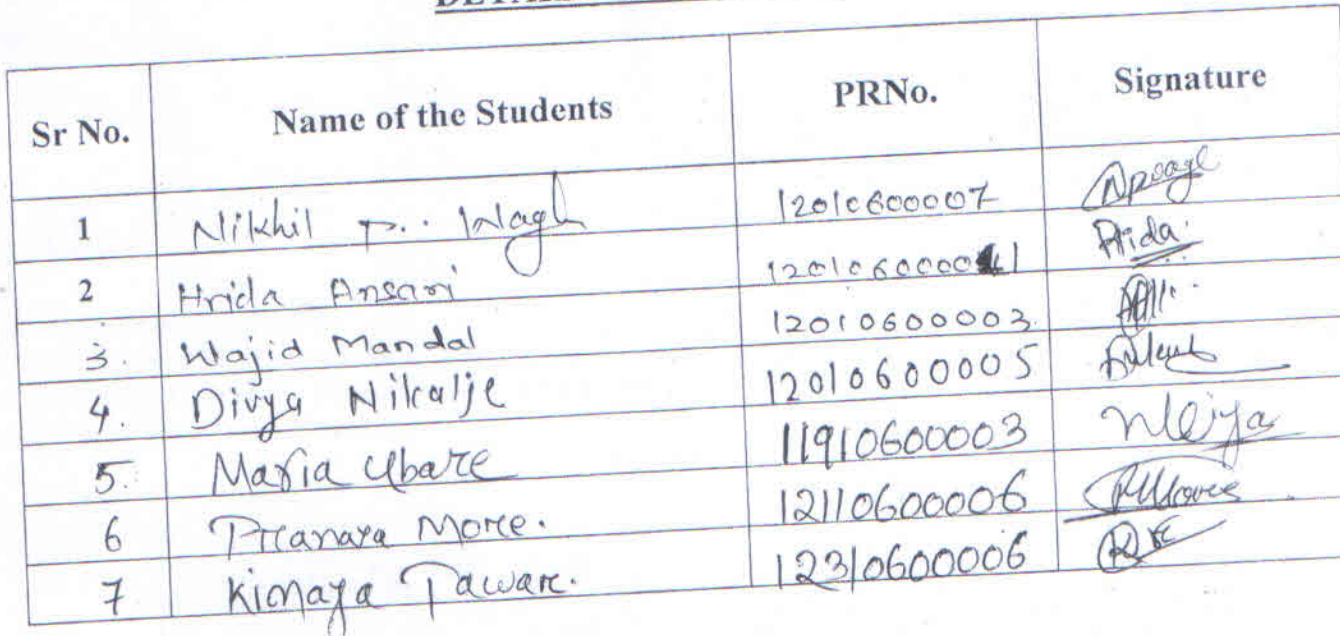 Sr No. Name of the Students PRNo. Signature
1 Nikhil P. Wagh 12010600007
2 Hrida Ansari Hrida
3. Wajid Mandal 12010600003.
4. Divya Nikalje 12010600005
5. Maria Ubare 11910600003
6 Pranaya More. 12110600006
7 Kimaya Pawar. 12310600006